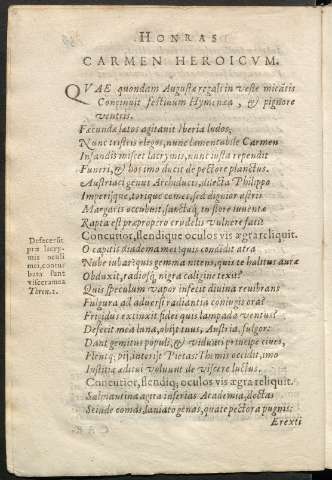 HONRAS
CARMEN HEROICVM.
QVAE quondam Augustæ regali in veste micãtis
Concinuit festinum Hymenæa, & pignore
ventris.
Fæcunda latos agitauit Iberia ludos,
Nunc tristris elegos, nunc lamentabile Carmen
Infandis miscet lacrymis, nunc iusta rependit
Funeri, & hos imo ducit de pectore planctus.
Austriaci genus Archiducis, dilecta Philippo
Imperijsque, torique comes, sed dignior astris
Margaris occubuit, in flore iuuentæ
Rapta est præpropere crudeli vulnere fati?
Concutior, flendique oculos vis ægra reliquit.
O capitis diadema mei quis condidit atra
Nube iubar? quis gemma nitens, quite habitus auræ
Obduxit, radiosq; nigra caligine texit?
Quis speculum vapor infecit diuina reuibrans
Fulgura ad aduersi radiantia coniugis ora?
Frigidus extinxit fidei quis lampada ventus?
Defecit mea luna, obijt tuus, Austria, fulgor:
Dant gemitus populi, & viduuti principe ciues,
Flentq; pij, interijt Pietas: Themis occidit, imo
Iustitiæ æditui voluunt de viscere luctus.
Concutior, flendiq; oculos vis ægra reliquit.
Salmantina agit a inferias Academia, doctas
Scinde comas, laniato genas, quate pectora pugnis:
Erexti
Defecerũt
præ lacry-
mis oculi
mei, contur
bata sunt
viscera mea
Thren. 2.